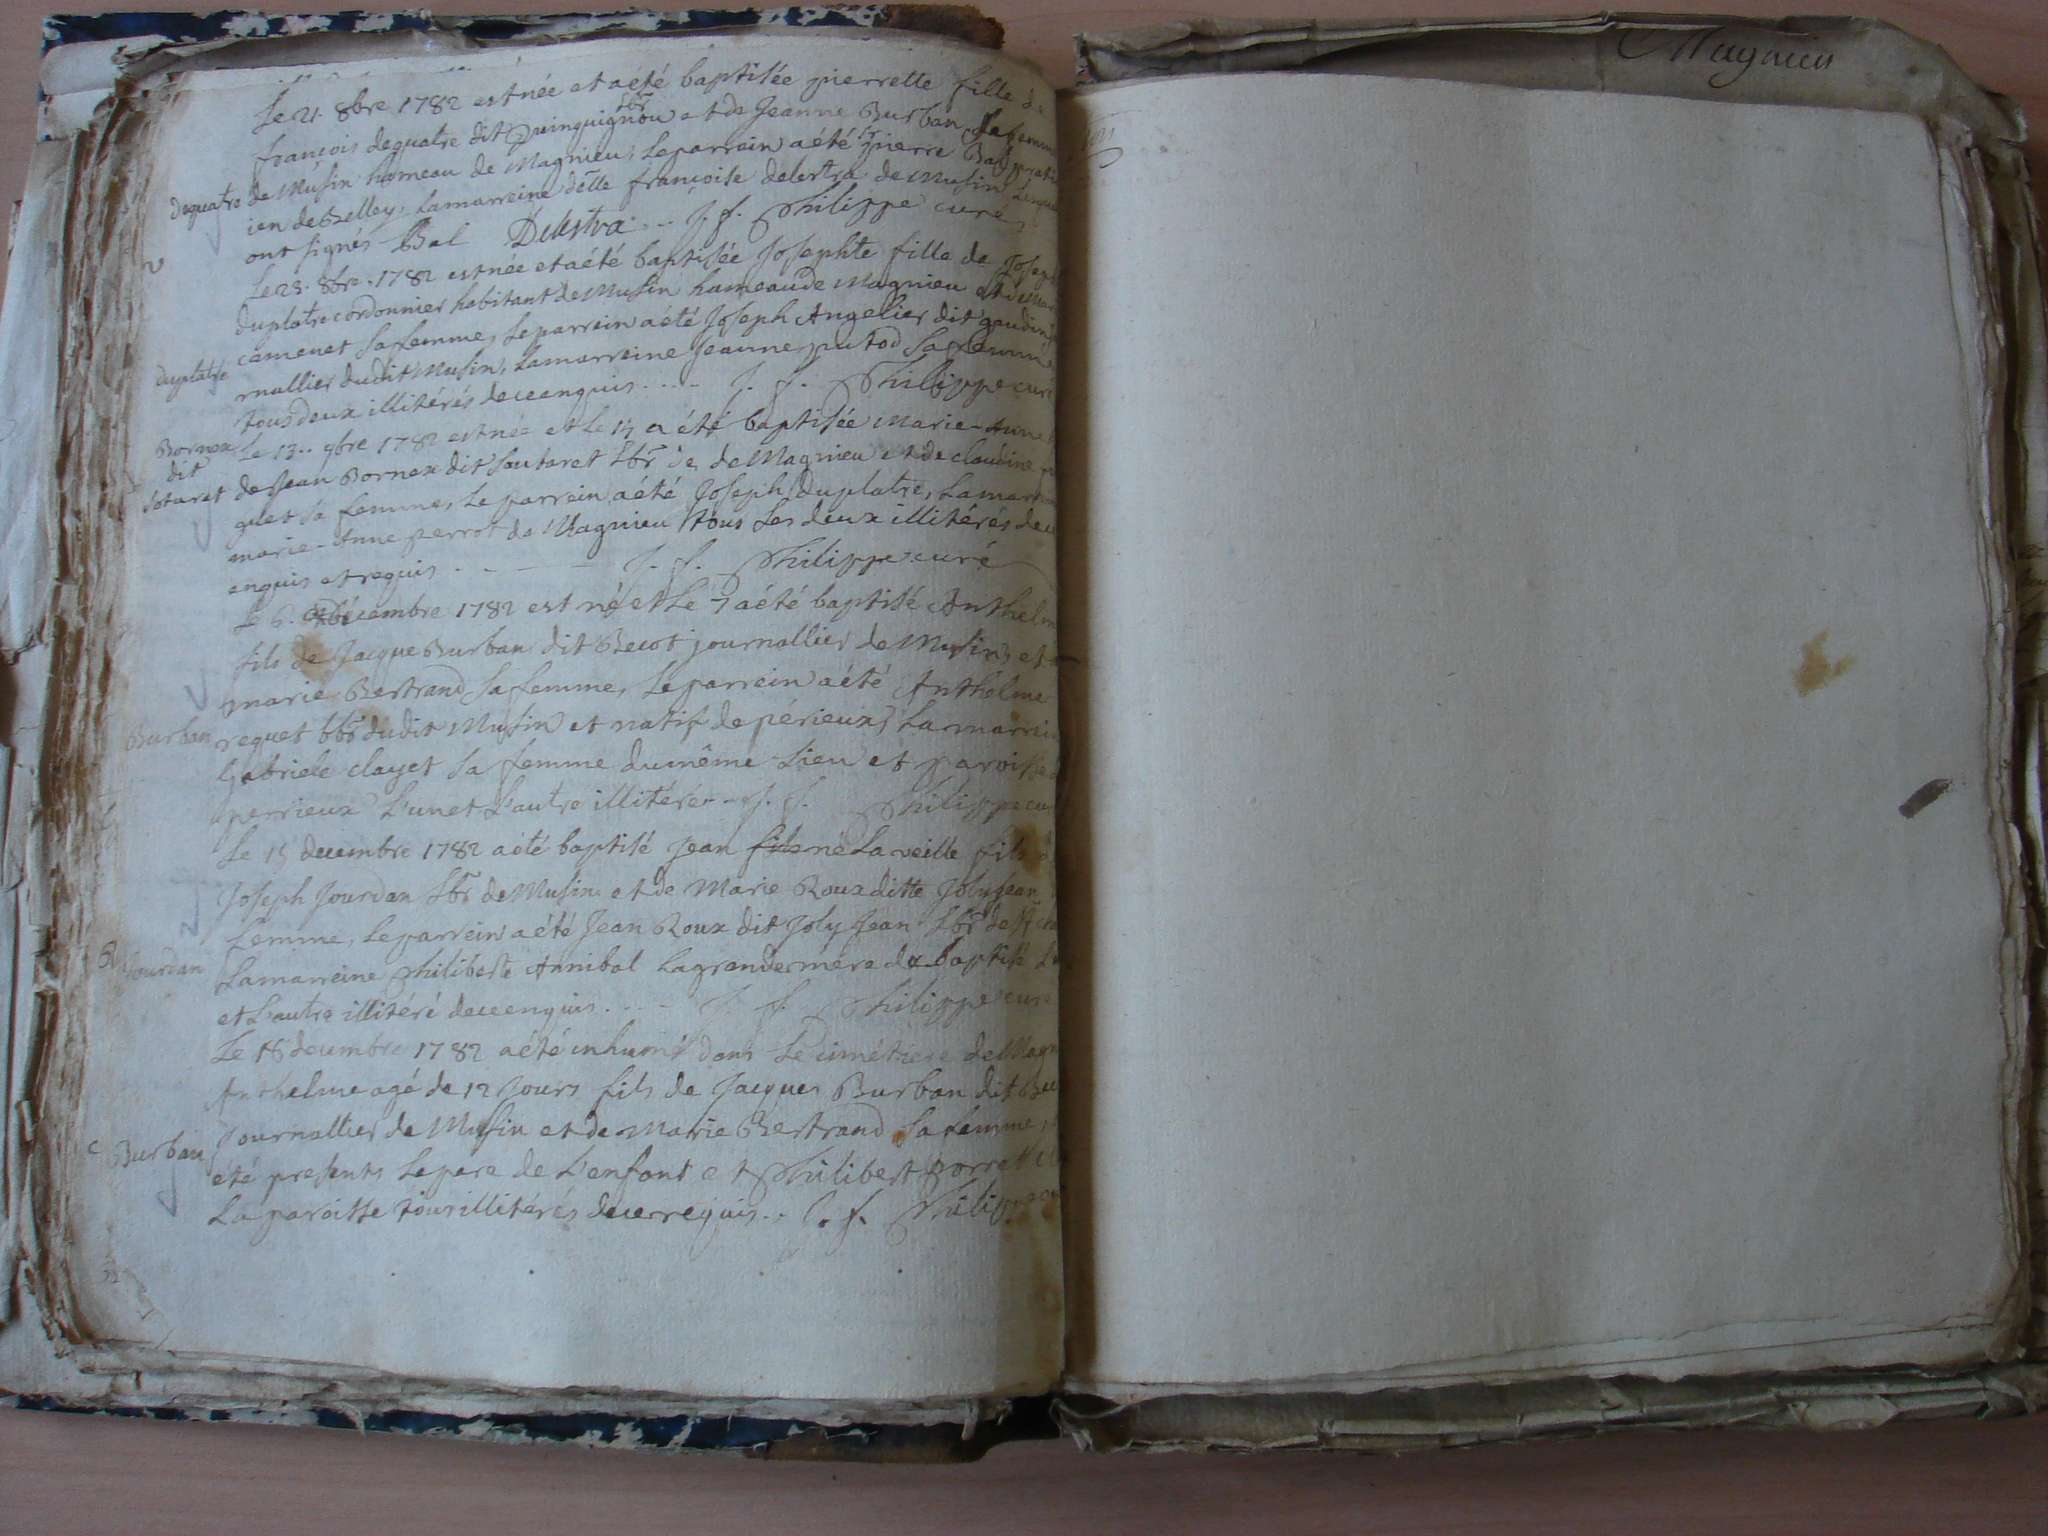 Le 21. 8bre 1782 est née et a été baptisée pierrette fille de
francois dequatre dit Quinquignou Lbr et de Jeanne Burban sa femme
Dequatre
de Musin hameau de Magnieu, Le parrein a été Sr pierre Bal prati
cien de Belley, La marreine delle francoise delestra de Musin Lesquels
ont signés Bal Delestra ... J. f. Philippe curé
Le 28. 8bre. 1782 est née et a été baptisée Josephte fille de Joseph
duplatre cordonnier habitant de Musin hameau de Magnieu et de Marie
duplatre
camenet sa femme, Le parrein a été Joseph Angelier dit gaudin jou
rnallier dudit Musin, La marreine Jeanne putod sa femme
tous deux illitérés de ce enquis .... J. f. Philippe curé
Bornex
dit
Sotaret
Le 13.. 9bre 1782 est née et Le 14 a été baptisée Marie-Anne
de Jean Bornex dit Soutaret Lbr de Magnieu et de claudine
guet sa femme, Le parrein a été Joseph duplatre, La marreine
marie-Anne perrot de Magnieu tous Les deux illitérés de ce
enquis et requis . - - - J. f. Philippe curé
Le 6. Décembre 1782 est né et Le 7 a été baptisé Anthelme
fils de Jacque Burban dit Becot journallier de Musin, et
marie Bertrand sa femme, Le parrein a été Anthelme
Burban
reguet Lbr dudit Musin et natif de périeux, La marreine
Gabriele clayet sa femme du même Lieu et paroisse
perrieux L'un et L'autre illitéré - - J. f. Philippe curé
Le 15 decembre 1782 a été baptisé Jean fils né La veille fils de
Joseph Jourdan Lbr de Musin et de Marie Roux ditte Joly Jean
Jourdan
femme, Le parrein a été Jean Roux dit Joly Jean Lbr de
La marreine Philiberte Annibal La grande mére du baptisé L'un
et L'autre illitéré de ce enquis .... J. f. Philippe curé
Le 18 decembre 1782 a été inhumé dans Le cimétiere de Magnieu
Anthelme agé de 12 Jours fils de Jacques Burban dit Becot
Burban
Journallier de Musin et de Marie Bertrand sa femme,
été presents Le pere de L'enfant et Philibert porret
La paroisse tous illitérés de ce requis .. J. f. Philippe curé
Magnieu